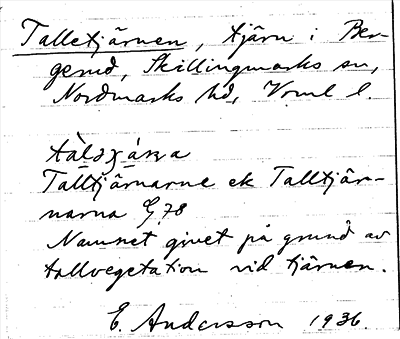 Talletjärnen, tjärn i Ber-
gerud, Skillingmarks sn,
Nordmarks hd, Vrml l.
Talltjärnarne ek Talltjär-
narna G. 78
Namnet givet på grund av
tallvegetation vid tjärnen.
E. Andersson 1936.